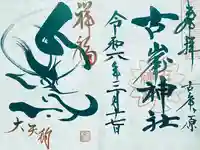 奉拝
古峯ヶ原
古峯神社
令和六年三月
祥福
大天狗